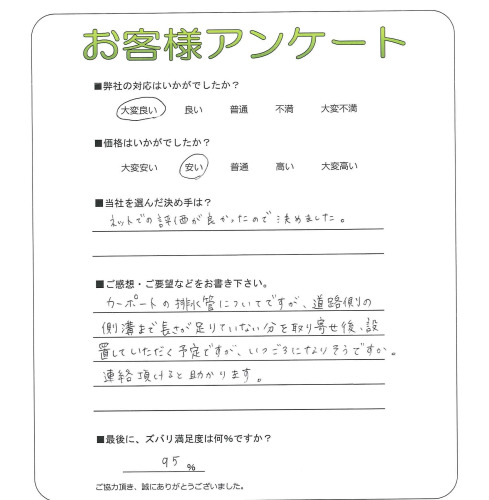 お客様アンケート
■弊社の対応はいかがでしたか？
大変良い 良い 普通 不満 大変不満
■価格はいかがでしたか？
大変安い 安い 普通 高い 大変高い
■当社を選んだ決め手は？
ネットでの評価が良かったので決めました。
■ご感想・ご要望などをお書き下さい。
カーポートの排水管についてですが、道路側の
側溝まで長さが足りていない分を取り寄せ後、設
置していただく予定ですが、いつごろになりそうですか。
連絡頂けると助かります。
■最後に、ズバリ満足度は何％ですか？
95 %
ご協力頂き、誠にありがとうございました。